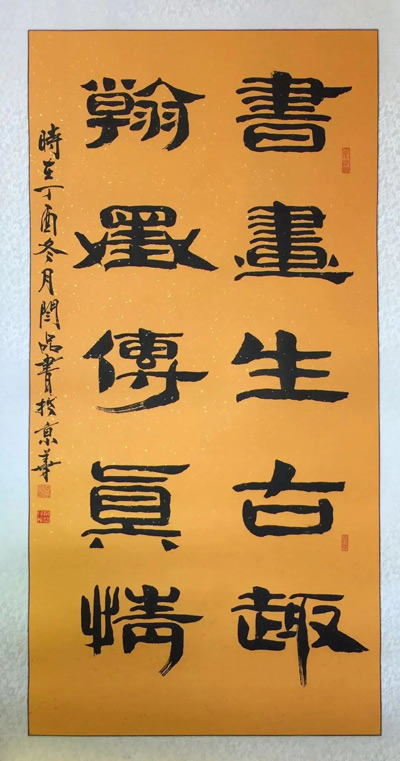 書畫生古趣
翰墨傳真情
時在丁酉冬月閆品書於京華